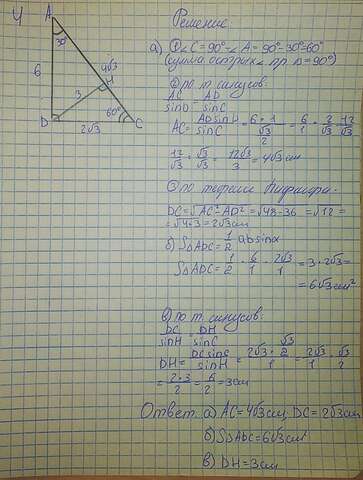 4
A
30°
6
4√3
H
3
D
60°
C
2√3
Решение:
а) ① ∠C = 90° - ∠A = 90° - 30° = 60°
(сумма острых ∠ пр Δ = 90°)
② по т. синусов:
AC/sinD = AD/sinC
AC = AD sinD/sinC = 6·1/(√3/2) = 6/1 · 2/√3 = 12/√3
12/√3 · √3/√3 = 12√3/3 = 4√3 см
③ по теореме Пифагора:
DC = √AC² - AD² = √48 - 36 = √12 =
= √4·3 = 2√3 см
б) SΔADC = 1/2 ab sinα
SΔADC = 1/2 · 6/1 · 2√3/1 = 3 · 2√3 =
= 6√3 см²
в) по т. синусов:
DC/sinH = DH/sinC
DH = DC sinC/sinH = 2√3 · √3/2 /1 = 2√3/1 · √3/2
= 2·3/2 = 6/2 = 3 см
Ответ: а) AC = 4√3 см, DC = 2√3 см
б) SΔADC = 6√3 см²
в) DH = 3 см